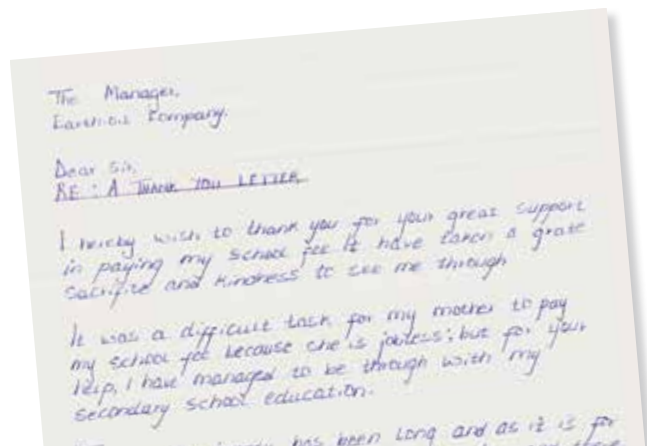 The Manager,
Earthoil Company.
Dear Sir,
RE: A THANK YOU LETTER
I hereby wish to thank you for your great support
in paying my school fee it have taken a grate
sacrifice and kindness to see me through
It was a difficult task for my mother to pay
my school fee because she is jobless; but for your
help, I have managed to be through with my
secondary school education.
has been long and as it is for